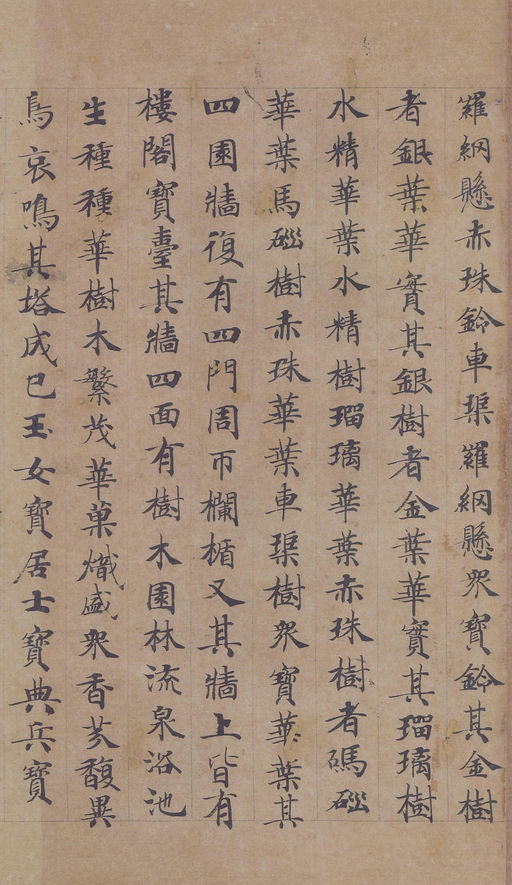 羅網懸赤珠鈴車𤦲羅網懸衆寶鈴其金樹
者銀葉華實其銀樹者金葉華寶其瑠璃樹
水精華葉水精樹瑠璃華葉赤珠樹者碼碯
華葉馬碯樹赤珠華葉車𤦲樹衆寶華葉其
四園牆復有四門周帀欄楯又其牆上皆有
樓閣寶臺其牆四面有樹木園林流泉浴池
生種種華樹木繁茂華菓熾盛衆香芬馥異
鳥哀鳴其塔成已玉女寶居士寶典兵寶